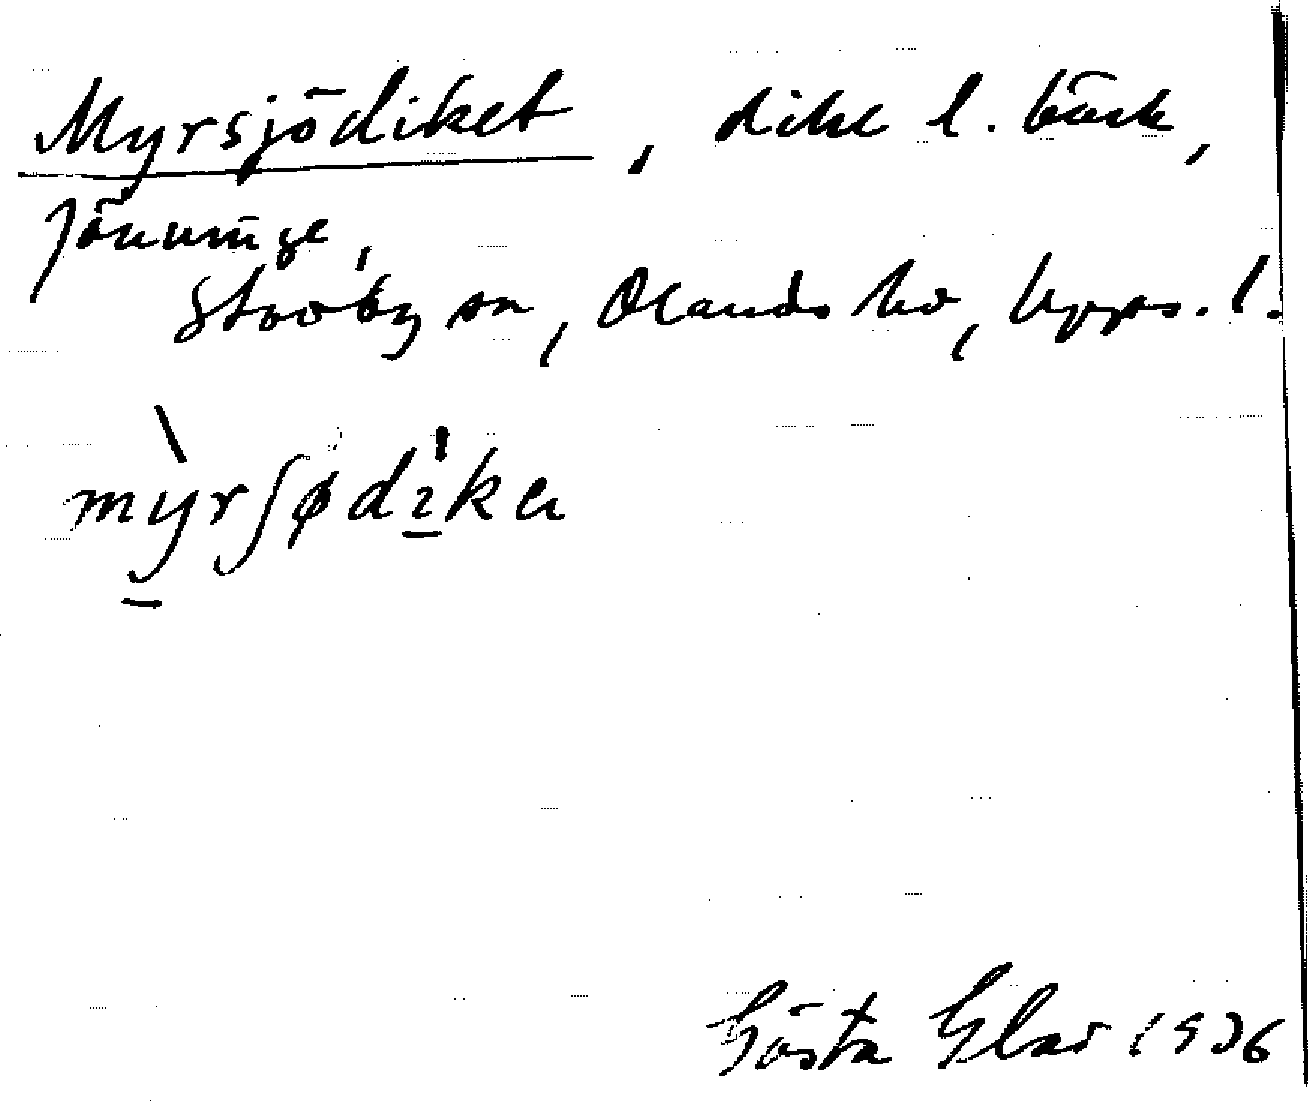 Myrsjödiket, dike l. bäck,
Jönninge,
Stavby sn, Olands hd, Upps. l.
my̱rʃød̀ɩ̱ka
Gösta Elar 1936